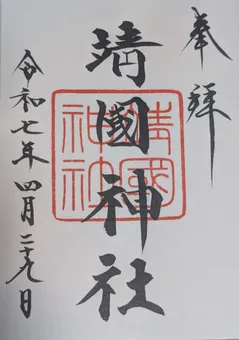 奉拝
靖國神社
靖國神社
令和七年四月二十九日